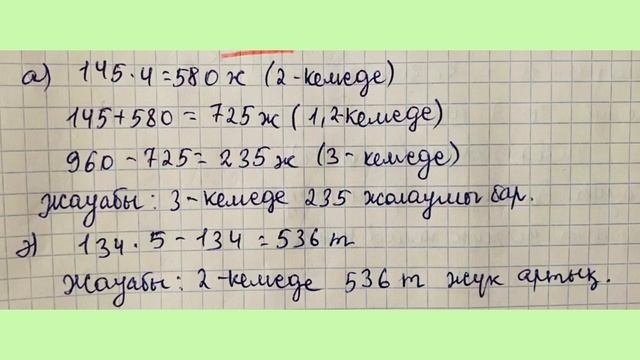 а) 145·4=580 ж (2-кемеде)
145+580=725 ж (1,2-кемеде)
960-725=235 ж (3-кемеде)
Жауабы: 3-кемеде 235 жолаушы бар.
ә) 134·5-134=536 т
Жауабы: 2-кемеде 536 т жүк артық.